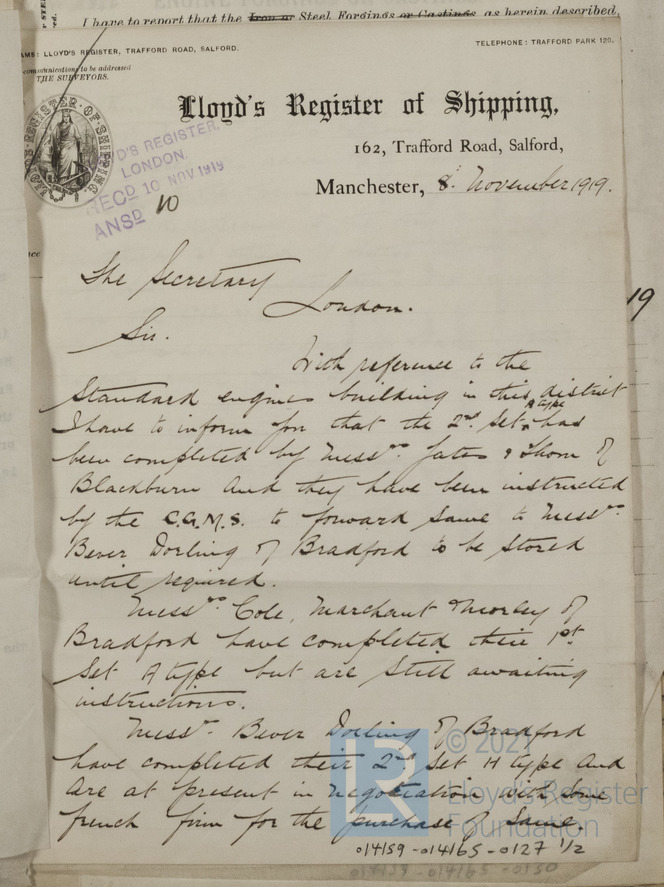 I have to report that the Iron or Steel Forgings or Castings as herein described,
AMS: LLOYD'S REGISTER, TRAFFORD ROAD, SALFORD.
TELEPHONE: TRAFFORD PARK 120.
communications to be addressed
THE SURVEYORS.
Lloyd's Register of Shipping,
162, Trafford Road, Salford,
Manchester, 8. November 1919.
LLOYD'S REGISTER OF SHIPPING
D'S REGISTER.
LONDON.
RECD 10 NOV 1919
ANSD 10
The Secretary
London.
19
Sir.
With reference to the
Standard engines building in this district
I have to inform you that the 2nd set A type has
been completed by Messrs. Yates & Thom of
Blackburn and they have been instructed
by the C.G.M.S. to forward same to Messrs.
Bever Dorling of Bradford to be stored
until required.
Messrs. Cole, Marchant & Morley of
Bradford have completed their 1st
set A type but are still awaiting
instructions.
Messrs. Bever Dorling of Bradford
have completed their 2nd set H type and
are at present in negotiation with some
french firm for the purchase of same.
LR
© 2021
Lloyd's Register
Foundation
014159-014165-0127 1/2